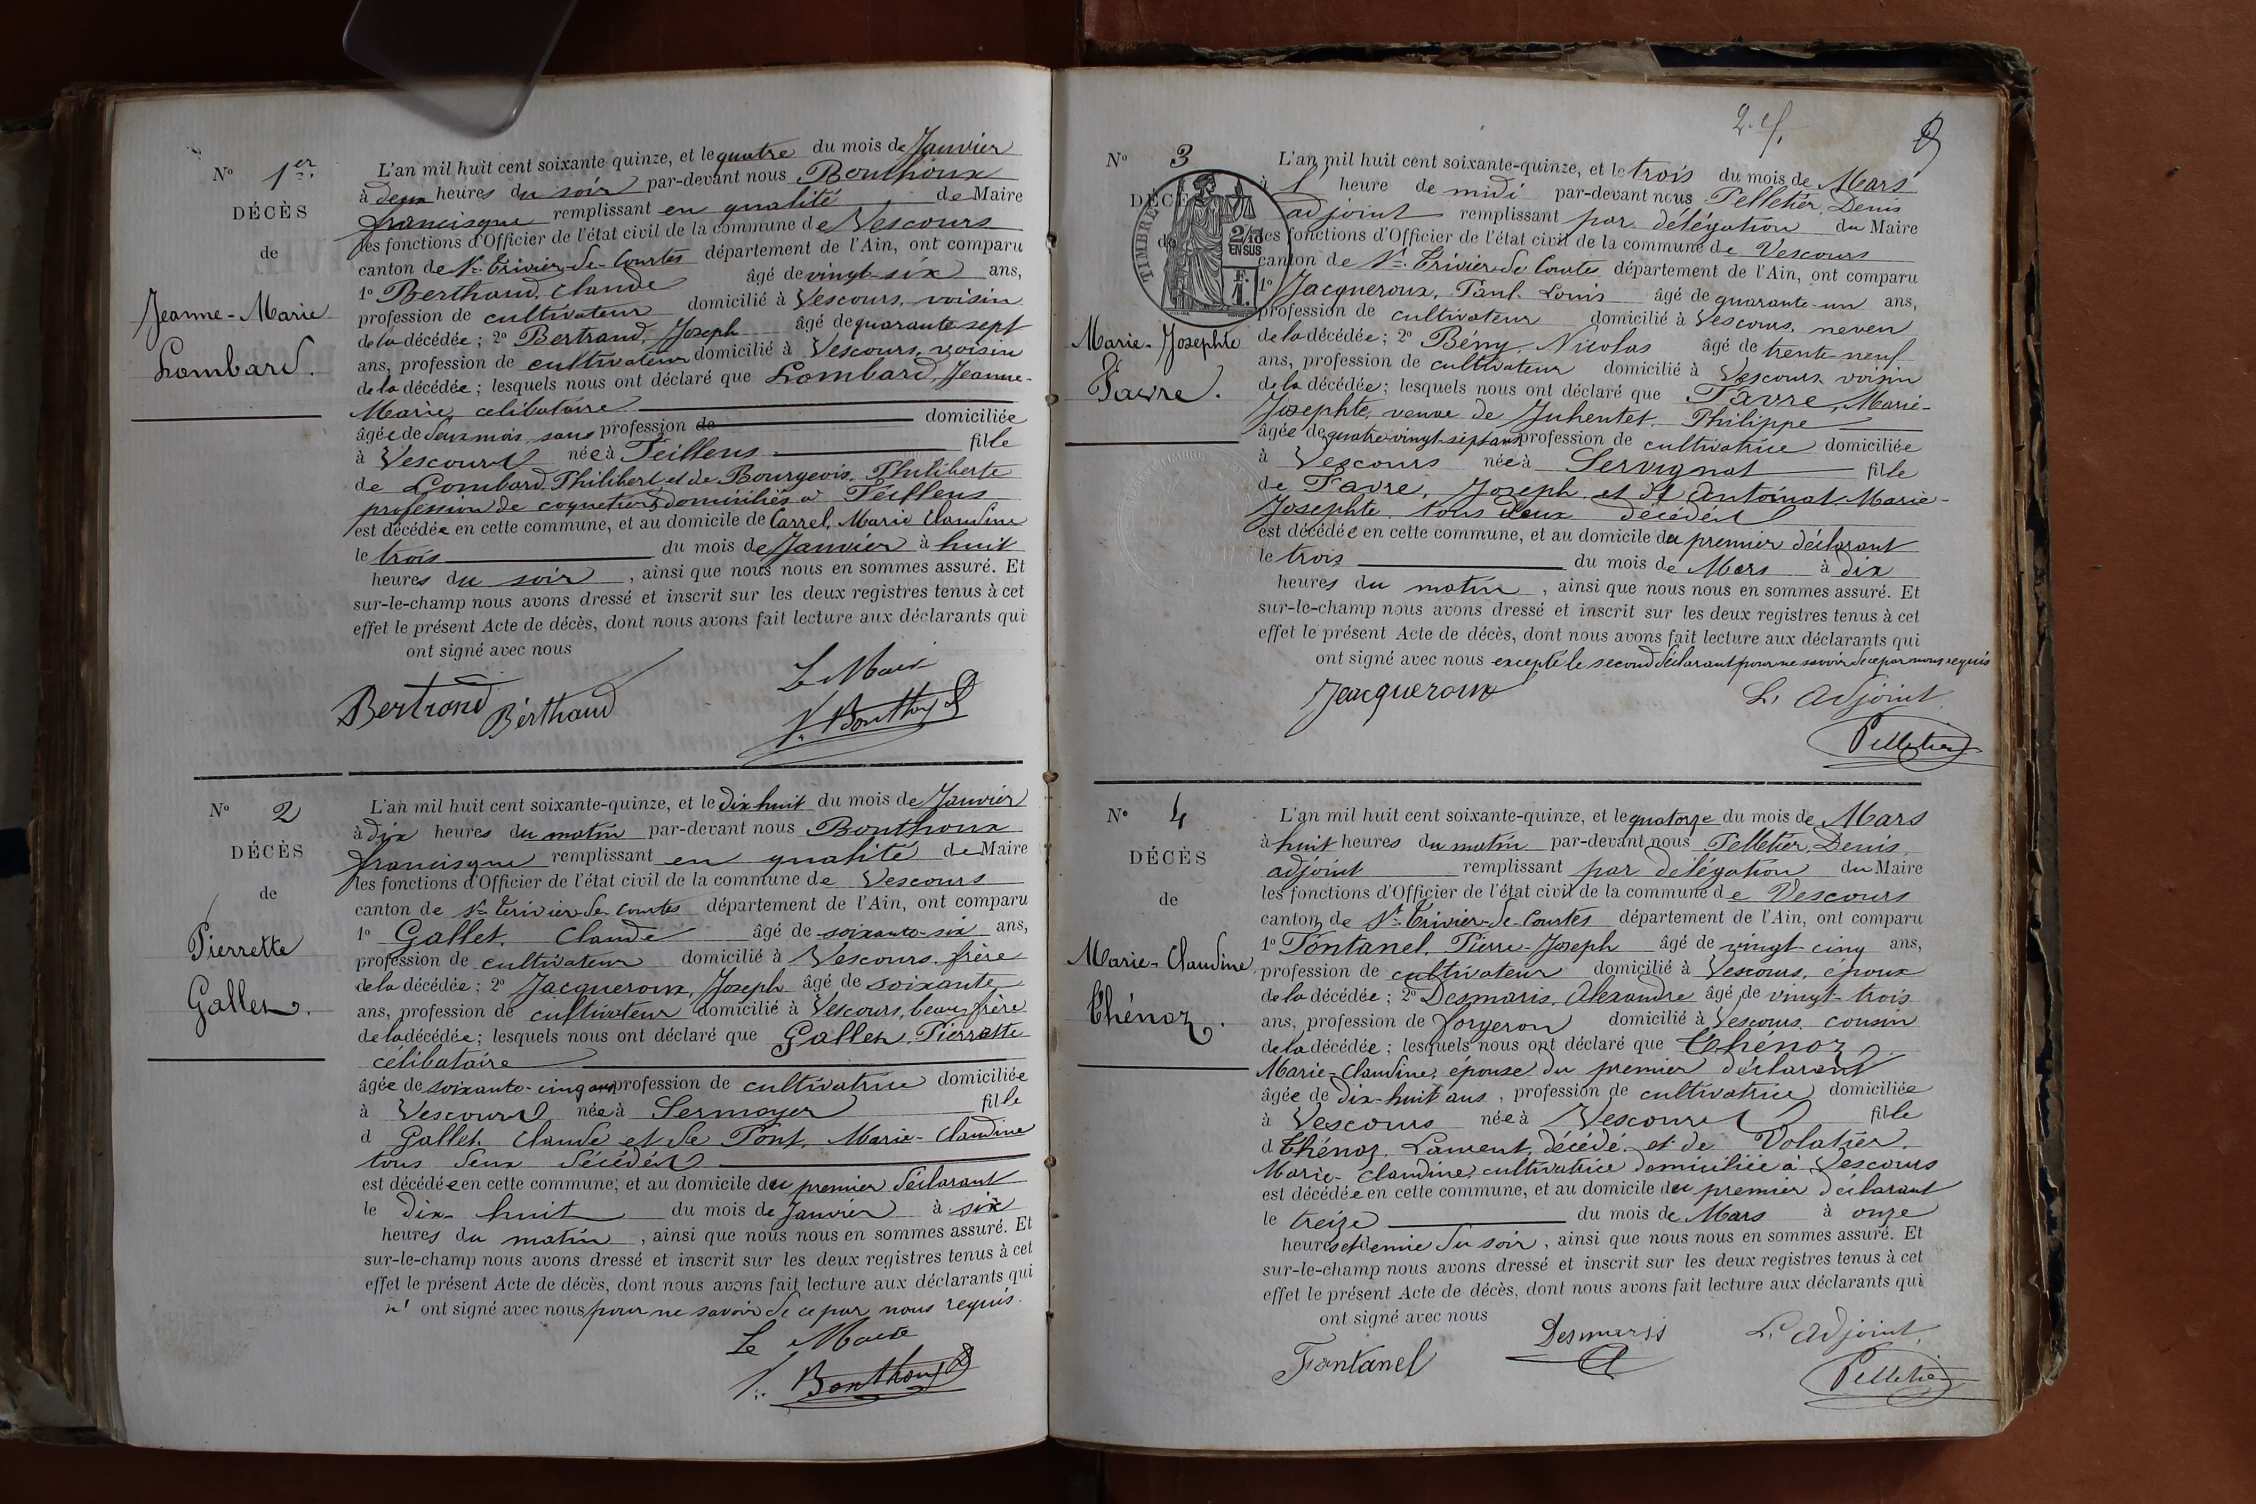 N° 1er
DÉCÈS
de
Jeanne-Marie
Lombard.
L'an mil huit cent soixante-quinze, et le quatre du mois de Janvier
à deux heures du soir par-devant nous Bonthoux
francisque remplissant en qualité de Maire
les fonctions d'Officier de l'état civil de la commune de Vescours
canton de St Trivier-de-Courtes département de l'Ain, ont comparu
1° Berthaud, Claude âgé de vingt-six ans,
profession de cultivateur domicilié à Vescours, voisin
de la décédée; 2° Bertrand, Joseph âgé de quarante sept
ans, profession de cultivateur domicilié à Vescours, voisin
de la décédée; lesquels nous ont déclaré que Lombard, Jeanne-
Marie, célibataire
âgée de deux mois, sans profession de domiciliée
à Vescours née à Feillens fille
de Lombard Philibert et de Bourgeois Philiberte
profession de coquetiers domiciliés à Feillens
est décédée en cette commune, et au domicile de Carrel, Marie Claudine
le trois du mois de Janvier à huit
heures du soir, ainsi que nous nous en sommes assuré. Et
sur-le-champ nous avons dressé et inscrit sur les deux registres tenus à cet
effet le présent Acte de décès, dont nous avons fait lecture aux déclarants qui
ont signé avec nous
Le Maire
Bertrand Berthaud
F. Bonthoux
N° 2
DÉCÈS
de
Pierrette
Gallet.
L'an mil huit cent soixante-quinze, et le dix huit du mois de Janvier
à dix heures du matin par-devant nous Bonthoux
francisque remplissant en qualité de Maire
les fonctions d'Officier de l'état civil de la commune de Vescours
canton de St Trivier-de-Courtes département de l'Ain, ont comparu
1° Gallet, Claude âgé de soixante-six ans,
profession de cultivateur domicilié à Vescours, frère
de la décédée; 2° Jacqueroux, Joseph âgé de soixante
ans, profession de cultivateur domicilié à Vescours, beau-frère
de la décédée; lesquels nous ont déclaré que Gallet, Pierrette
célibataire
âgée de soixante-cinq ans profession de cultivatrice domiciliée
à Vescours née à Sermoyer fille
d Gallet, Claude et de Pont, Marie-Claudine
tous deux décédés
est décédée en cette commune, et au domicile du premier déclarant
le dix-huit du mois de Janvier à six
heures du matin, ainsi que nous nous en sommes assuré. Et
sur-le-champ nous avons dressé et inscrit sur les deux registres tenus à cet
effet le présent Acte de décès, dont nous avons fait lecture aux déclarants qui
n' ont signé avec nous pour ne savoir de ce par nous requis.
Le Maire
F. Bonthoux
2 f.
N° 3
DÉCÈS
de
TIMBRE
2/10
EN SUS
F.
1.
Marie-Josephte
Favre.
L'an mil huit cent soixante-quinze, et le trois du mois de Mars
à 1 heure de midi par-devant nous Pelletier, Denis
adjoint remplissant par délégation du Maire
les fonctions d'Officier de l'état civil de la commune de Vescours
canton de St Trivier-de-Courtes département de l'Ain, ont comparu
1° Jacqueroux, Paul-Louis âgé de quarante-un ans,
profession de cultivateur domicilié à Vescours, neveu
de la décédée; 2° Bény, Nicolas âgé de trente-neuf
ans, profession de cultivateur domicilié à Vescours voisin
de la décédée; lesquels nous ont déclaré que Favre, Marie-
Josephte, veuve de Juhentet, Philippe
âgée de quatre-vingt-sept ans profession de cultivatrice domiciliée
à Vescours née à Servignat fille
de Favre, Joseph et d'Antoinat Marie-
Josephte tous deux décédés
est décédée en cette commune, et au domicile du premier déclarant
le trois du mois de Mars à dix
heures du matin, ainsi que nous nous en sommes assuré. Et
sur-le-champ nous avons dressé et inscrit sur les deux registres tenus à cet
effet le présent Acte de décès, dont nous avons fait lecture aux déclarants qui
ont signé avec nous excepté le second déclarant pour ne savoir de ce par nous requis
Jacqueroux L'Adjoint
Pelletier
N° 4
DÉCÈS
de
Marie-Claudine
Thénoz.
L'an mil huit cent soixante-quinze, et le quatorze du mois de Mars
à huit heures du matin par-devant nous Pelletier, Denis,
adjoint remplissant par délégation du Maire
les fonctions d'Officier de l'état civil de la commune de Vescours
canton de St Trivier-de-Courtes département de l'Ain, ont comparu
1° Fontanel, Pierre-Joseph âgé de vingt-cinq ans,
profession de cultivateur domicilié à Vescours, époux
de la décédée; 2° Desmaris, Alexandre âgé de vingt-trois
ans, profession de forgeron domicilié à Vescours, cousin
de la décédée; lesquels nous ont déclaré que Thénoz
Marie-Claudine, épouse du premier déclarant
âgée de dix-huit ans, profession de cultivatrice domiciliée
à Vescours née à Vescours fille
d Thénoz Laurent, décédé, et de Volatier,
Marie-Claudine, cultivatrice domiciliée à Vescours
est décédée en cette commune, et au domicile du premier déclarant
le treize du mois de Mars à onze
heures et demie du soir, ainsi que nous nous en sommes assuré. Et
sur-le-champ nous avons dressé et inscrit sur les deux registres tenus à cet
effet le présent Acte de décès, dont nous avons fait lecture aux déclarants qui
ont signé avec nous
Fontanel Desmaris L'Adjoint,
Pelletier